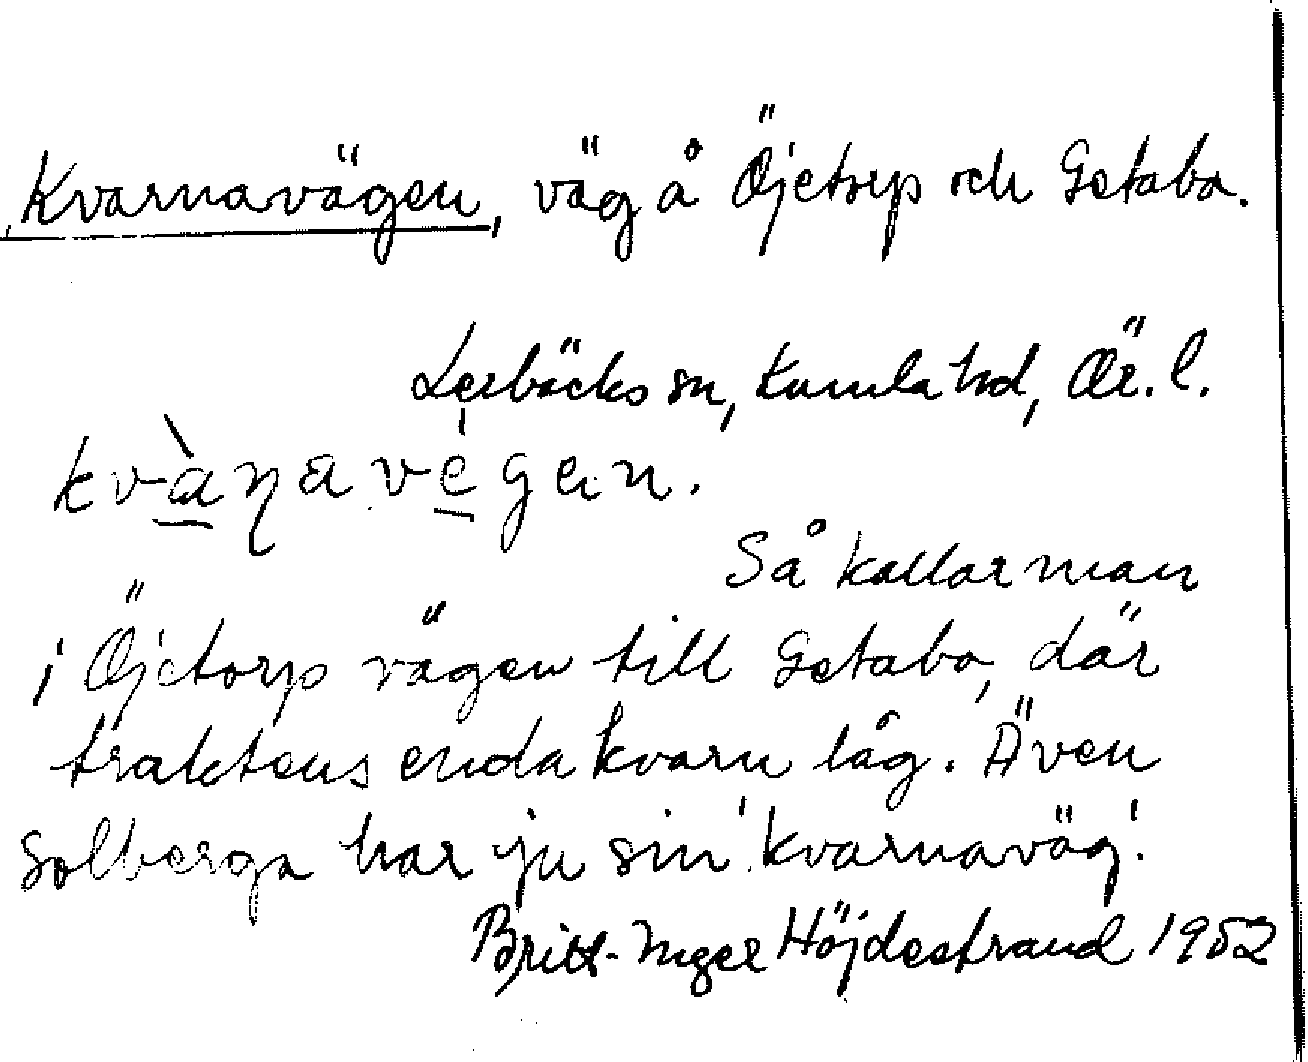 Kvarnavägen, väg å Öjetorp och Getabo.
Lerbäcks sn, Kumla hd, Ör. l.
kvàɳavégen.
Så kallar man
i Öjetorp vägen till Getabo, där
traktens enda kvarn låg. Även
Solberga har ju sin 'kvarnaväg'.
Britt-Inger Höjdestrand 1952